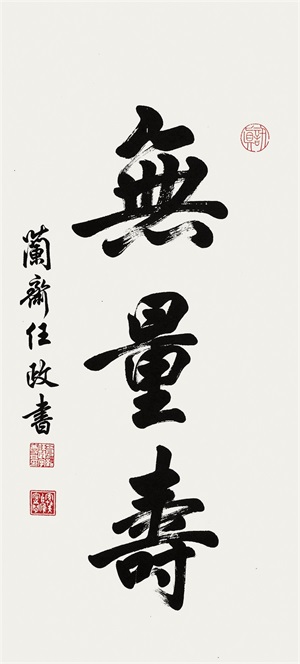 無量壽
蘭齋任政書